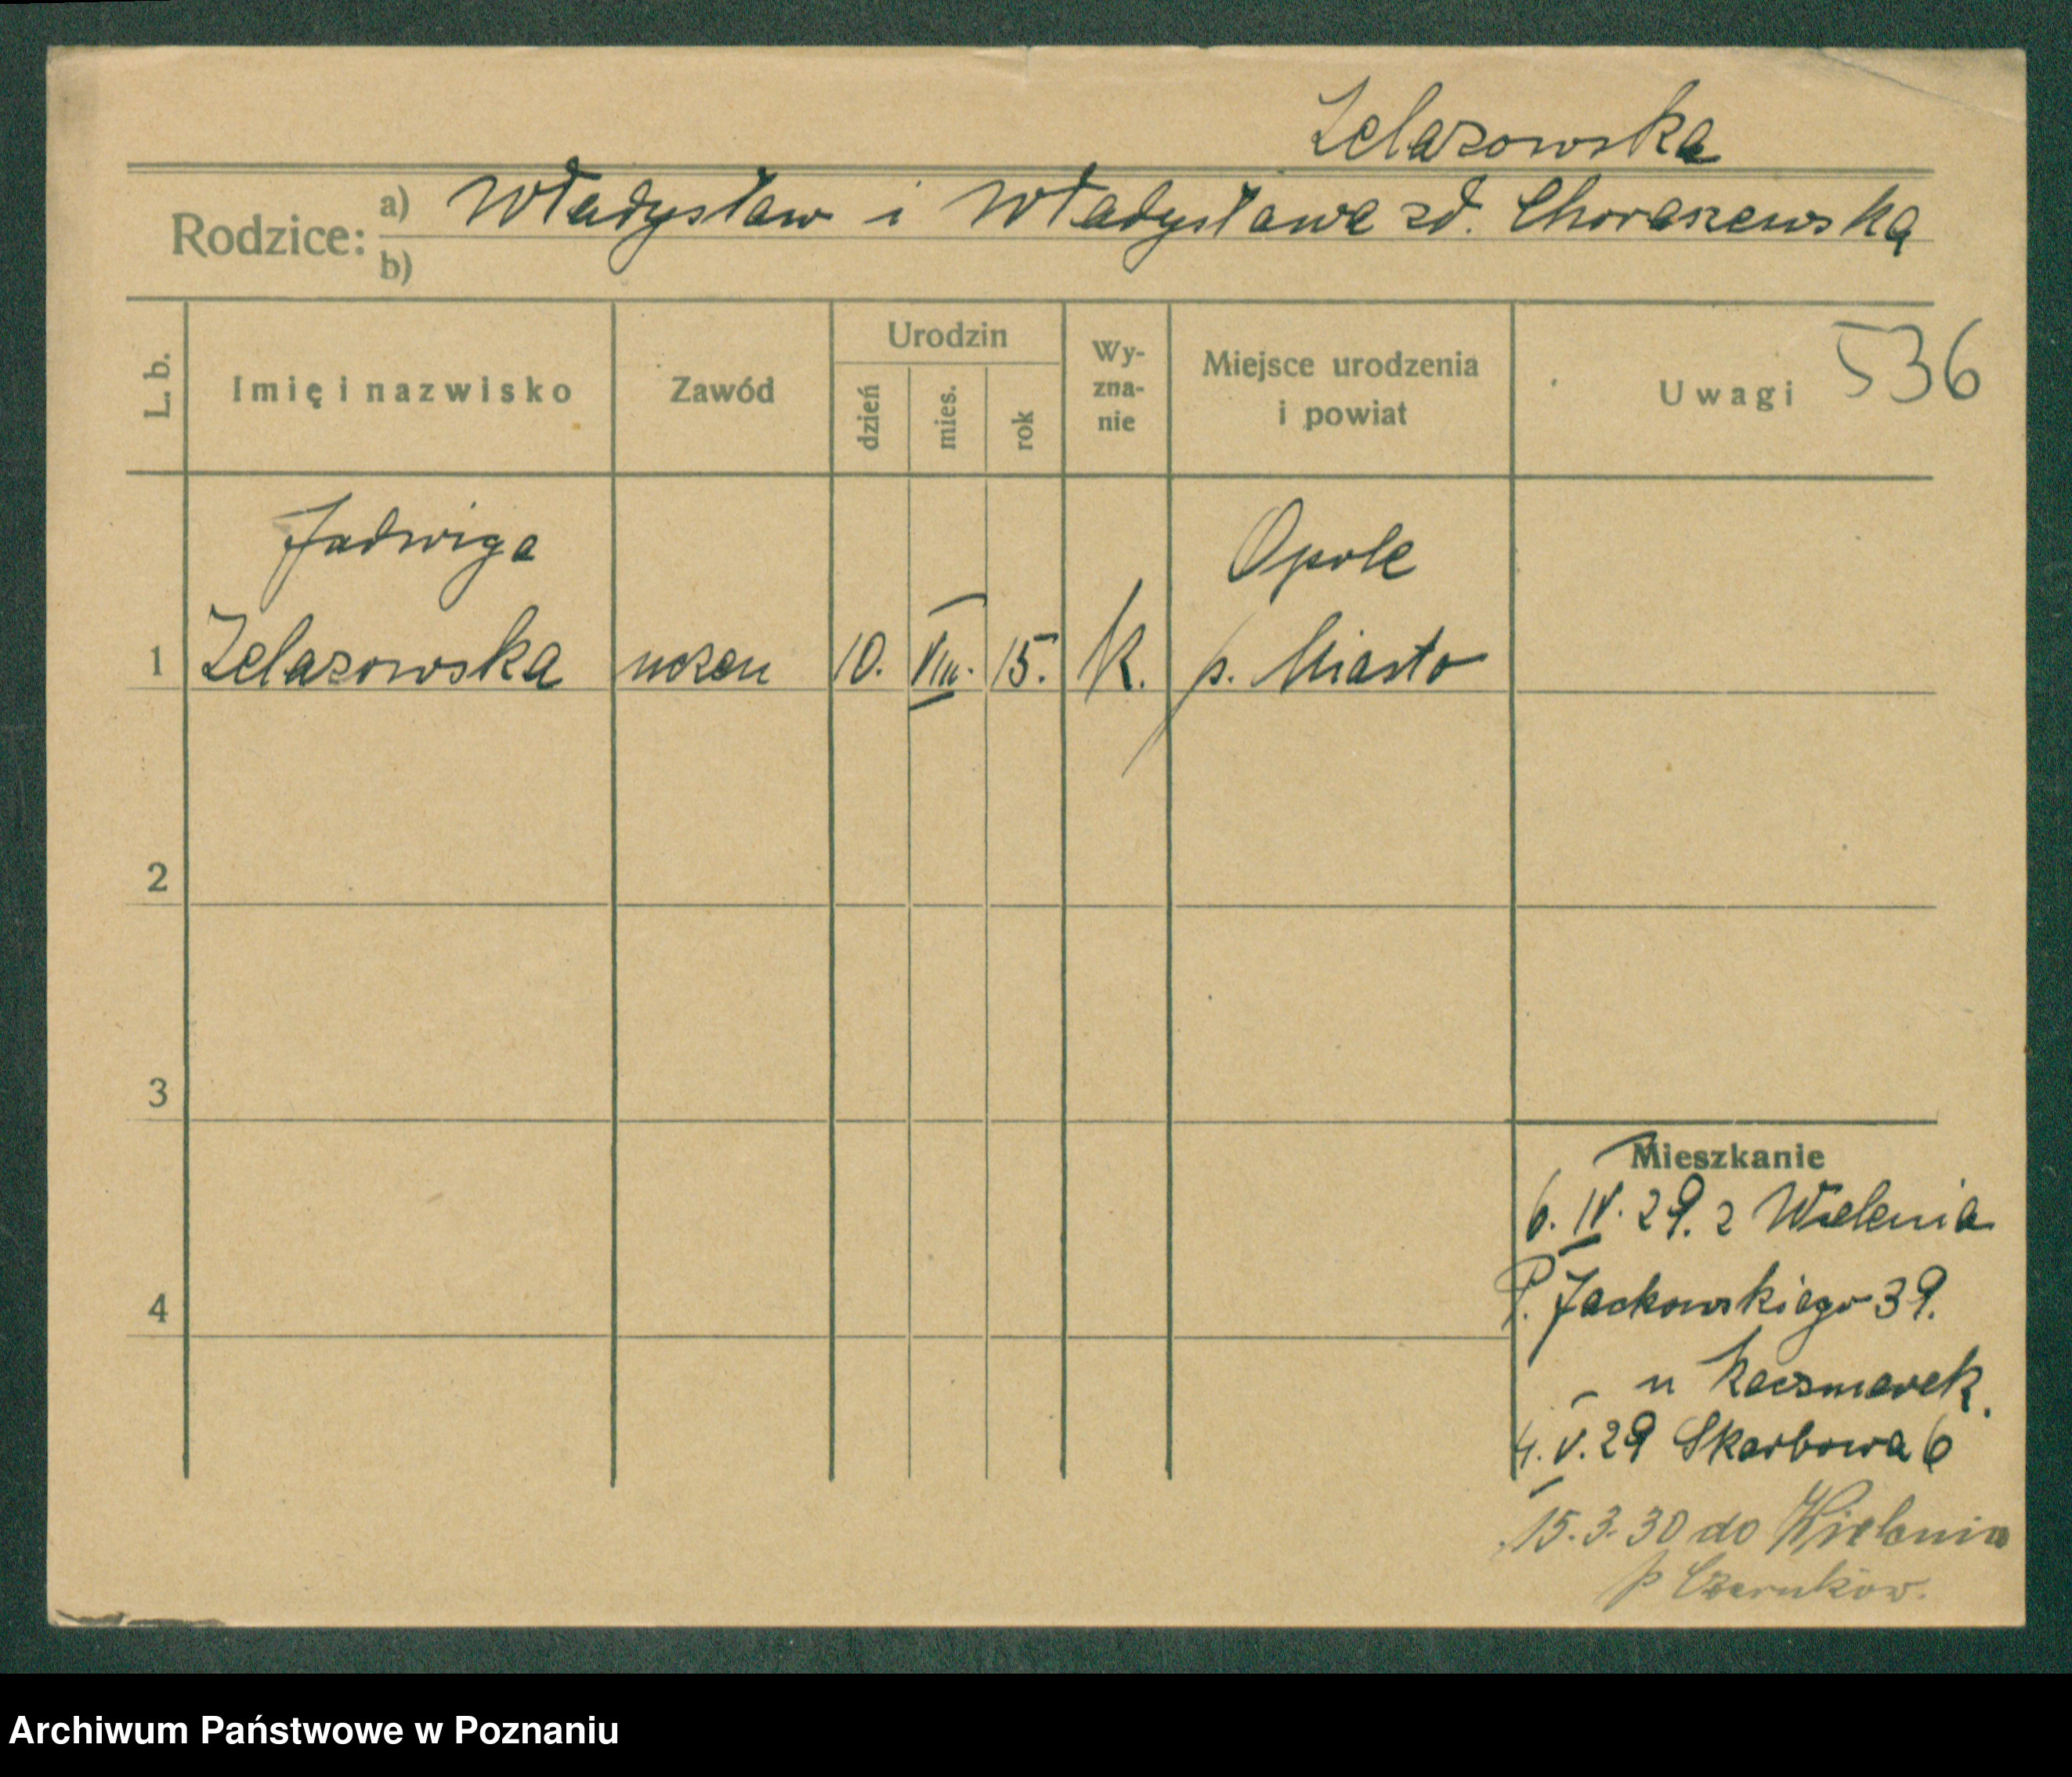 Zelazowska
Rodzice: a) Władysław i Władysława zd. Choraszewska
b)
L. b. Imię i nazwisko Zawód Urodzin dzień mies. rok Wy-zna-nie Miejsce urodzenia i powiat Uwagi 536
Jadwiga Opole
1 Zelazowska uczen 10. VIII. 15. K. p. Miasto
2
3
Mieszkanie
6. IV. 29. z Wielenia
4 P. Jackowskiego 39.
u Kaczmarek.
4. V. 29 Skarbowa 6
15. 3. 30 do Wielenia
p Czarnków.
Archiwum Państwowe w Poznaniu